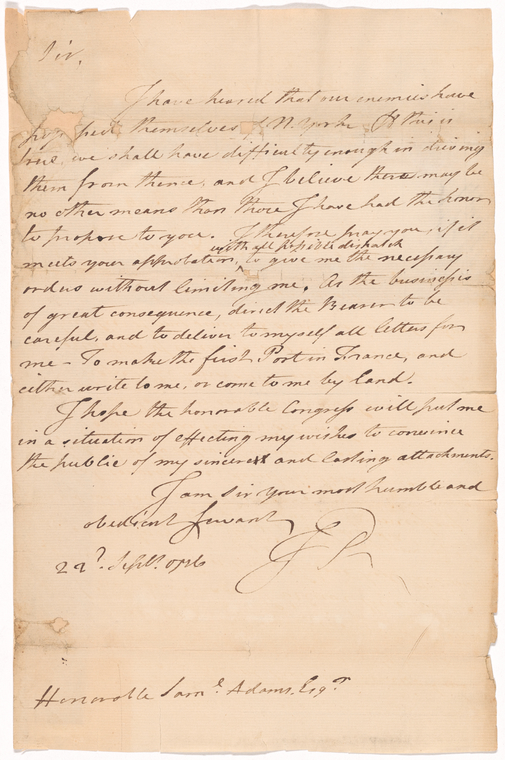 Sir,
I have heared that our enemies have
possessed themselves of N. York. If this is
true, we shall have difficulty enough in driving
them from thence, and I believe there may be
no other means than those I have had the honor
to propose to you. I therefore pray you, if it
with all possible dispatch
meets your approbation, to give me the necessary
orders without limiting me. As the business is
of great consequence, direct the Bearer to be
careful, and to deliver to myself all letters for
me – To make the first Port in France, and
either write to me, or come to me by land.
I hope the honorable Congress will put me
in a situation of effecting my wishes to convince
the public of my sincerest and lasting attachments.
I am sir your most humble and
obedient servant
22d. Sept. 1776
Honorable Saml. Adams, Esqr.